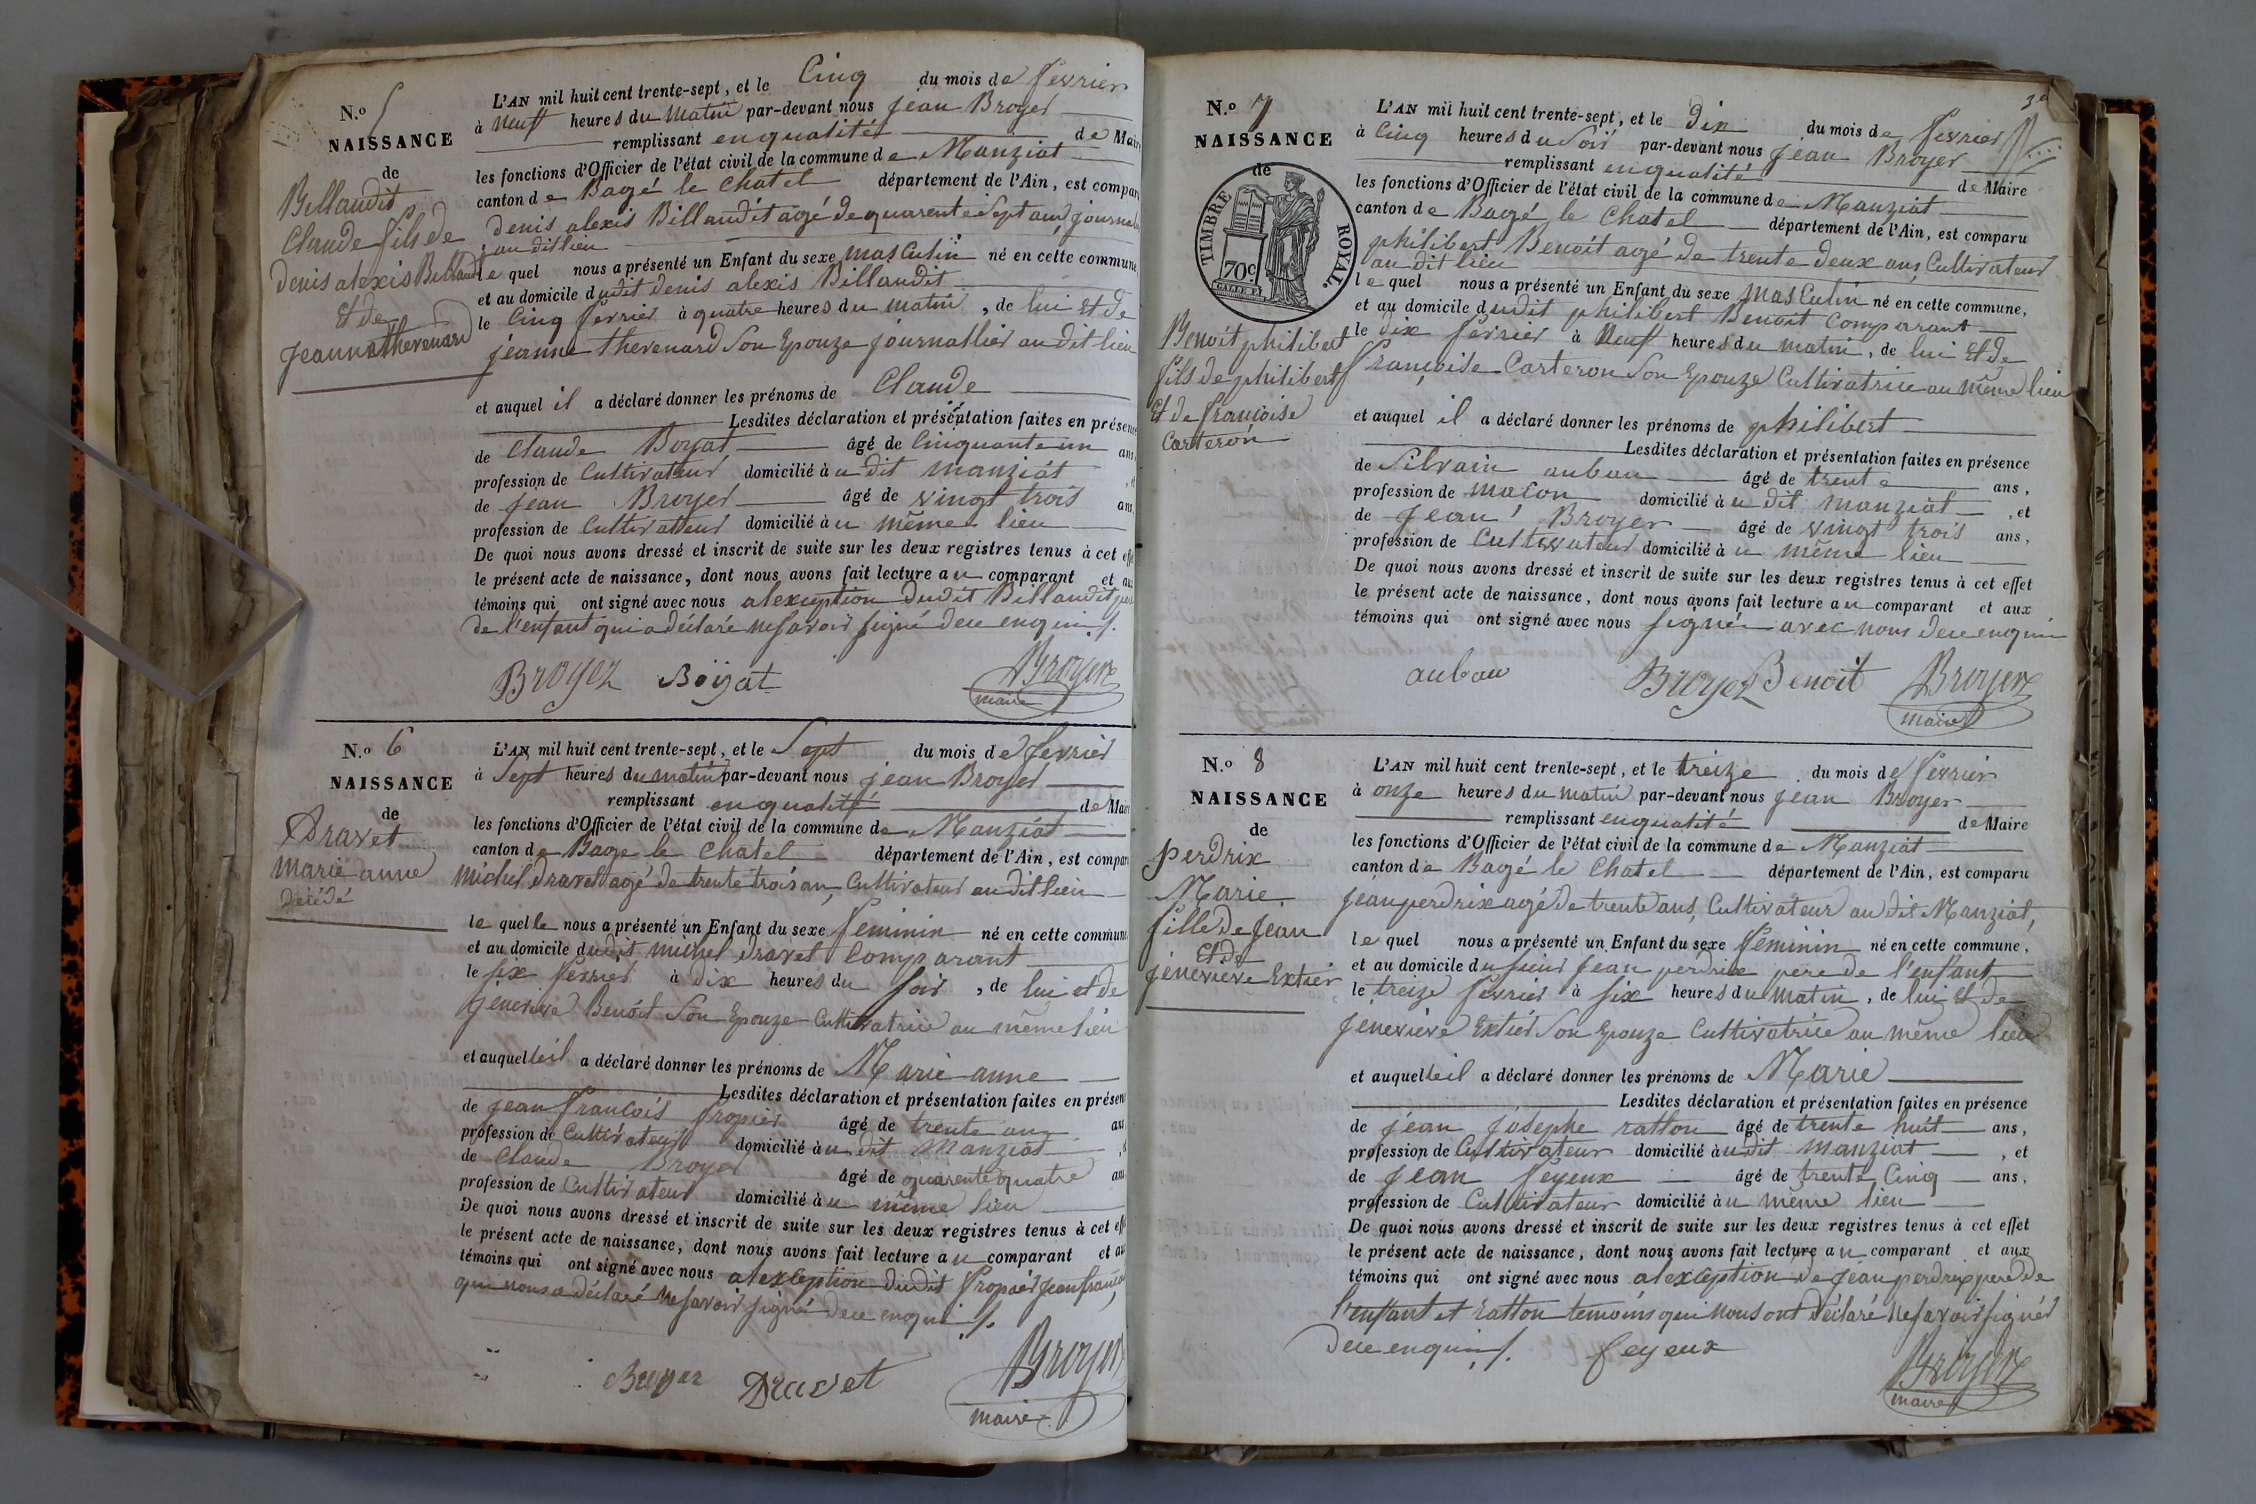 N.o 5
NAISSANCE
de
Billaudit
Claude fils de
denis alexis Billaudit
Et de
Jeanne thevenard
L'AN mil huit cent trente-sept, et le Cinq du mois de fevrier
à neuf heures du matin par-devant nous jean Broyer
remplissant en qualité de Maire
les fonctions d'Officier de l'état civil de la commune de Manziat
canton de Bagé le Chatel département de l'Ain, est comparu
denis alexis Billaudit agé de quarente sept ans journalier
au dit lieu
le quel nous a présenté un Enfant du sexe masculin né en cette commune
et au domicile dudit denis alexis Billaudit
le Cinq fevrier à quatre heures du matin, de lui et de
jeanne thevenard son Epouze journallier au dit lieu
et auquel il a déclaré donner les prénoms de Claude
Lesdites déclaration et présentation faites en présence
de Claude Boyat âgé de Cinquante un ans,
profession de Cultivateur domicilié àu dit manziat
de jean Broyer âgé de vingt trois ans,
profession de Cultivatteur domicilié àu même lieu
De quoi nous avons dressé et inscrit de suite sur les deux registres tenus à cet effet
le présent acte de naissance, dont nous avons fait lecture au comparant et aux
témoins qui ont signé avec nous alexception dudit Billaudit pere
de l'enfant qui a déclaré ne savoir signé dece enquis /.
Broyer Boÿat Broyer
maire
N.o 6
NAISSANCE
de
Dravet
Marie anne
décédé
L'AN mil huit cent trente-sept, et le Sept du mois de fevrier
à Sept heures du matin par-devant nous jean Broyer
remplissant en qualité de Maire
les fonctions d'Officier de l'état civil de la commune de Manziat
canton de Bage le chatel département de l'Ain, est comparu
michel dravet agé de trente trois an, Cultivateur au dit lieu
le quelle nous a présenté un Enfant du sexe feminin né en cette commune
et au domicile dudit michel dravet Comparant
le six fevrier à dix heures du soir, de lui et de
jenevieve Benóit son Epouze Cultivatrice au même lieu
et auquelleil a déclaré donner les prénoms de Marie anne
Lesdites déclaration et présentation faites en présence
de jean francois fropier âgé de trente ans
profession de Cultivateur domicilié àu dit Manziat
de Claude Broyer âgé de quarente quatre ans
profession de Cultivateur domicilié àu même lieu
De quoi nous avons dressé et inscrit de suite sur les deux registres tenus à cet effet
le présent acte de naissance, dont nous avons fait lecture au comparant et aux
témoins qui ont signé avec nous alexception dudit fropier jean francois
qui nous a déclaré ne savoir signé dece enquis /.
Broyer Dravet Broyer
maire
30
N.o 7
NAISSANCE
de
TIMBRE ROYAL.
70c
Benoit philibert
fils de philibert
Et de francoise
Carteron
L'AN mil huit cent trente-sept, et le dix du mois de fevrier
à Cinq heures du Soir par-devant nous jean Broyer
remplissant en qualité de Maire
les fonctions d'Officier de l'état civil de la commune de Manziat
canton de Bagé le Chatel département de l'Ain, est comparu
philibert Benoit agé de trente deux ans Cultivateur
au dit lieu
le quel nous a présenté un Enfant du sexe masculin né en cette commune,
et au domicile dudit philibert Benoit Comparant
le dix fevrier à Neuf heures du matin, de lui Et de
françoise Carteron son Epouze Cultivatrice au même lieu
et auquel il a déclaré donner les prénoms de philibert
Lesdites déclaration et présentation faites en présence
de Silvain aubau âgé de trente ans,
profession de macon domicilié àu dit manziat, et
de jean Broyer âgé de vingt trois ans,
profession de Cultivateur domicilié àu même lieu
De quoi nous avons dressé et inscrit de suite sur les deux registres tenus à cet effet
le présent acte de naissance, dont nous avons fait lecture au comparant et aux
témoins qui ont signé avec nous signé avec nous dece enquis
aubau Broyer Benoit Broyer
maire
N.o 8
NAISSANCE
de
perdrix
Marie
fille de jean
Et de
jenevieve Extier
L'AN mil huit cent trente-sept, et le treize du mois de fevrier
à onze heures du matin par-devant nous jean Broyer
remplissant en qualité de Maire
les fonctions d'Officier de l'état civil de la commune de Manziat
canton de Bagé le Chatel département de l'Ain, est comparu
jean perdrix agé de trente ans, Cultivateur au dit Manziat,
le quel nous a présenté un Enfant du sexe féminin né en cette commune,
et au domicile du sieur jean perdrix pere de l'enfant
le treize fevrier à six heures du matin, de lui Et de
jenevieve Extier son Epouze Cultivatrice au même lieu
et auquelleil a déclaré donner les prénoms de Marie
Lesdites déclaration et présentation faites en présence
de jean josephe ratton âgé de trente huit ans,
profession de Cultivateur domicilié àu dit manziat, et
de jean feyeux âgé de trente Cinq ans,
profession de Cultivateur domicilié àu même lieu
De quoi nous avons dressé et inscrit de suite sur les deux registres tenus à cet effet
le présent acte de naissance, dont nous avons fait lecture au comparant et aux
témoins qui ont signé avec nous alexception de jean perdrix pere de
l'enfant et ratton temoins qui nous ont déclaré ne savoir signés
dece enquis /. feyeux Broyer
maire